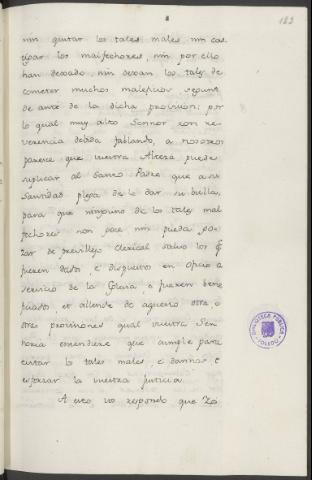 8
183
nin quitar los tales males, nin cas
tigar los malfechores, nin por ello
han dexado, nin dexan los tales de
cometer muchos maleficios segunt
de ante de la dicha provision; por
lo qual muy alto Sennor con re
verencia debida fablando, a nosotros
paresce que vuestra Alteza puede
suplicar al Santo Padre que a su
Santidad plega de le dar su bulla,
para que ninguno de los tales mal
fechores non goce nin pueda go
zar de previllejo clerical salvo los q
fueren dados, e dispuestos en oficio e
servicio de la Eglesia, o fueren bene
ficiados, et allende de aquesto otra o
otras provisiones qual vuestra Sen
noria entendiere que cumple para
evitar los tales males, e dannos, e
esforzar la vuestra justicia.
A esto vos respondo que Yo
BIBLIOTECA PUBLICA
TOLEDO